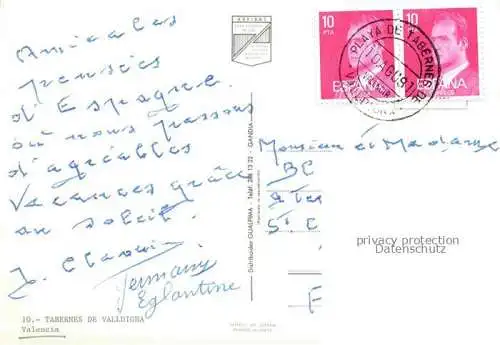 Amicales
pensées
d'Espagne
où nous passons
d'agréables
vacances grâce
au soleil
Germany
Eglantine
10.- TABERNES DE VALLDIGNA
Valencia
Distribuidor GUALFRA - Telef. 286 13 22 - GANDIA
10
PTA
10
ESPAÑA
PLAYA DE TABERNES
Monsieur et Madame
BE
St
F
privacy protection
Datenschutz